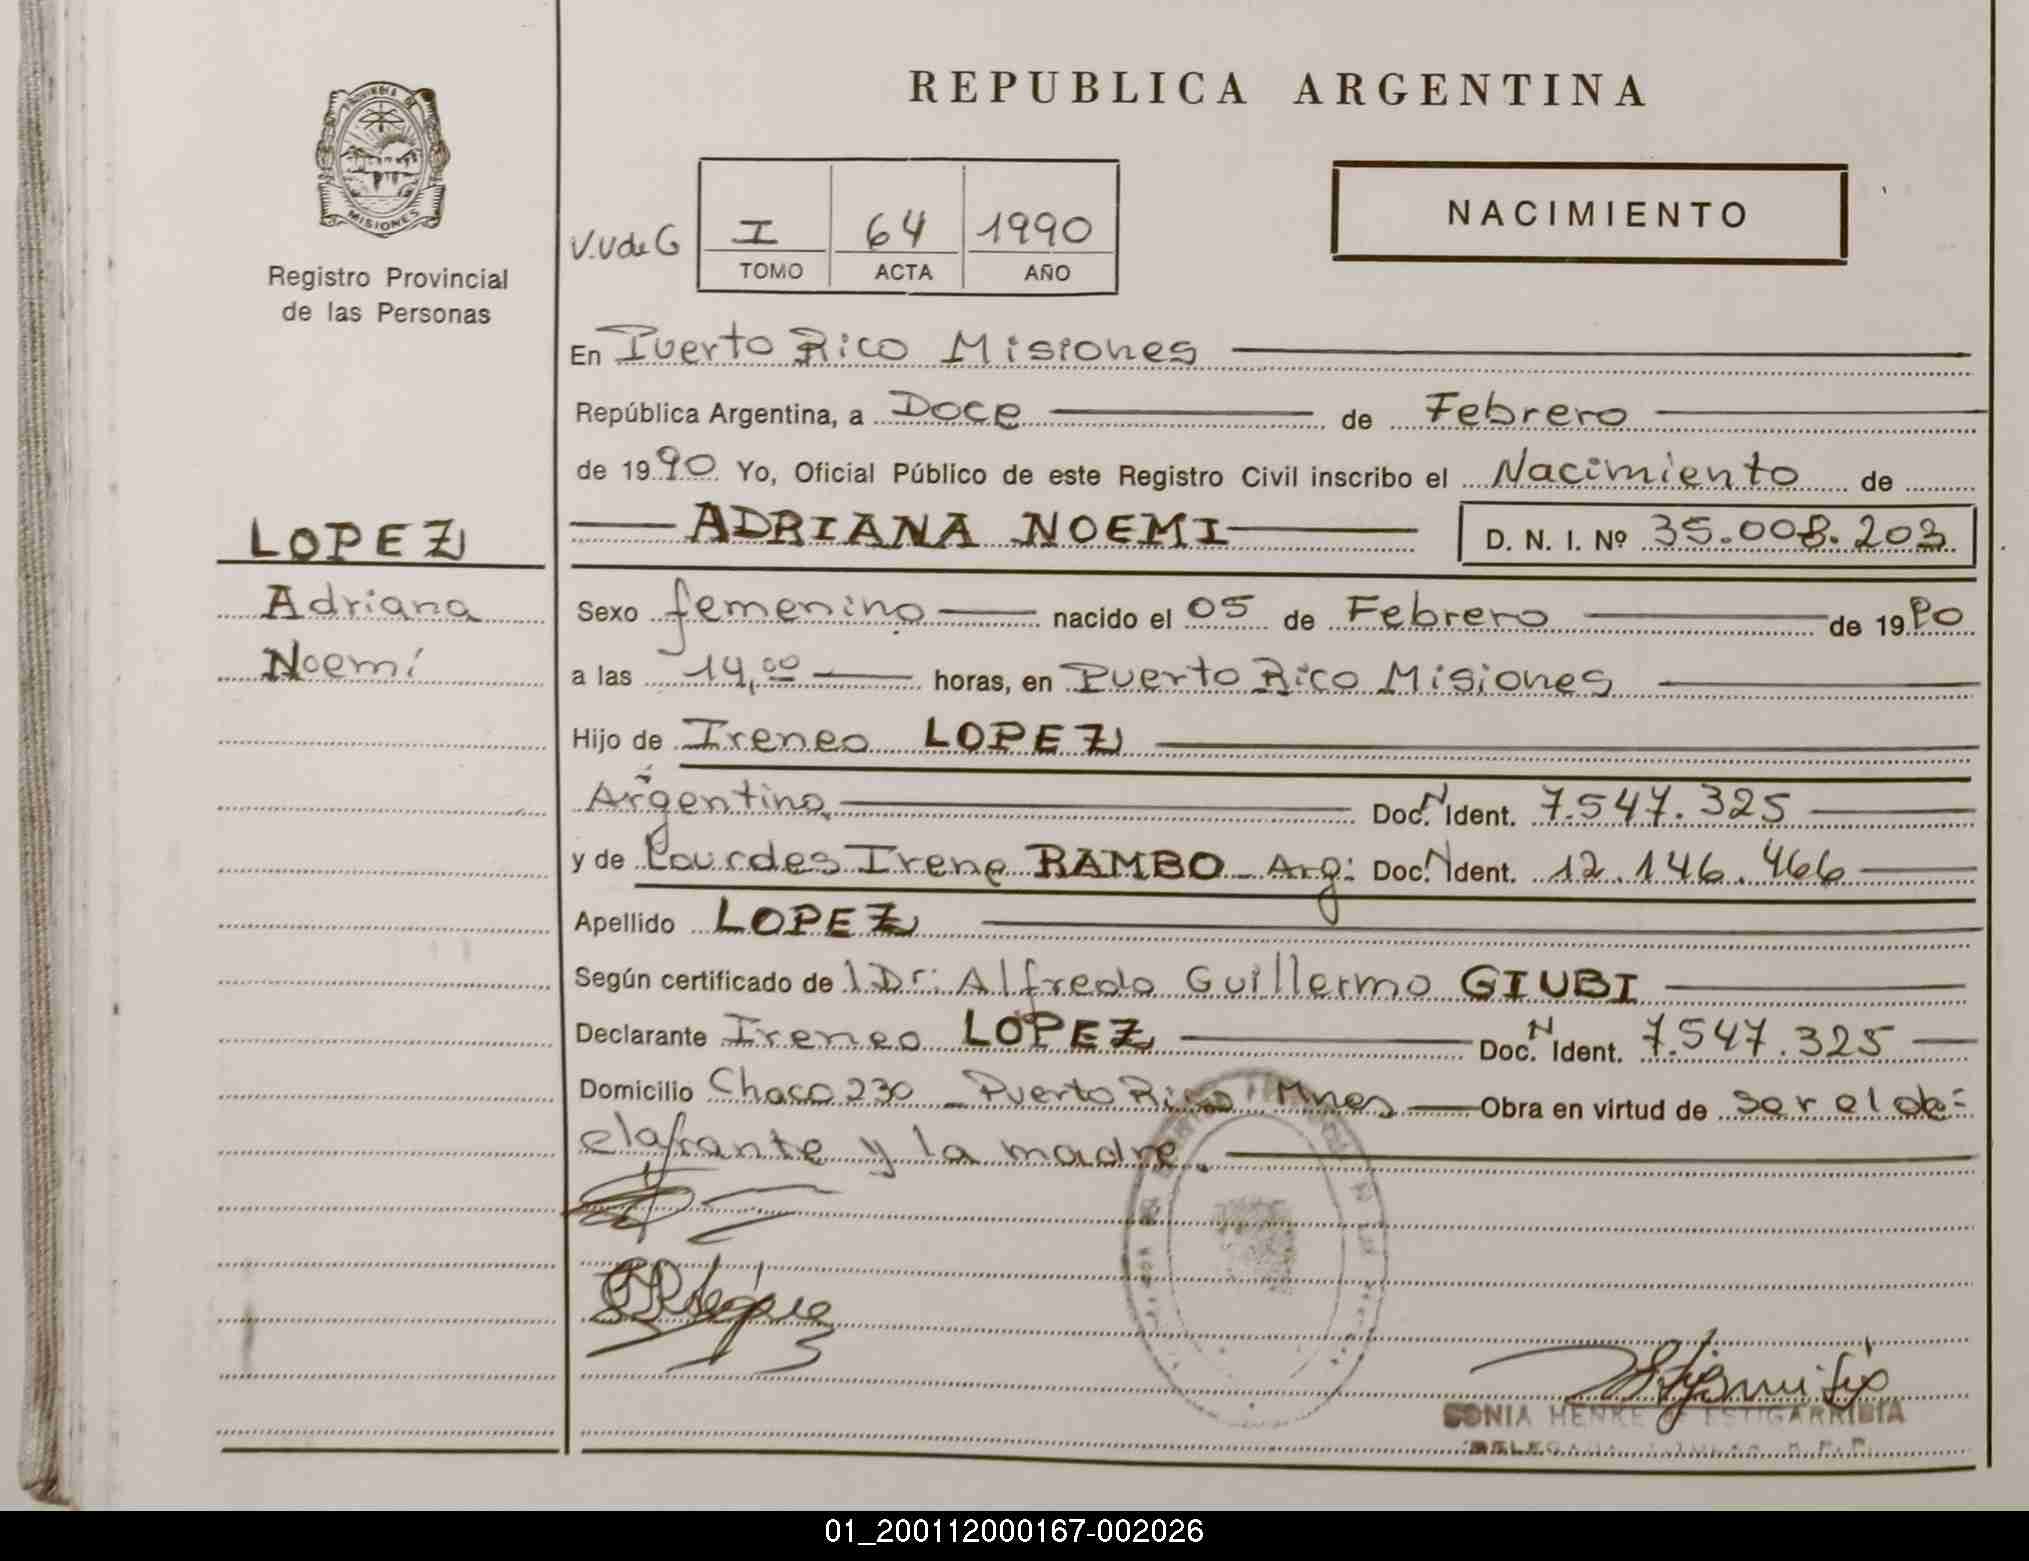 REPUBLICA ARGENTINA
PROVINCIA DE
MISIONES
Registro Provincial
de las Personas
NACIMIENTO
V.V de G
I 64 1990
TOMO ACTA AÑO
En Puerto Rico Misiones
República Argentina, a Doce de Febrero
de 1990 Yo, Oficial Público de este Registro Civil inscribo el Nacimiento de
ADRIANA NOEMI D. N. I. Nº 35.008.203
LOPEZ
Adriana
Noemí
Sexo femenino nacido el 05 de Febrero de 1990
a las 14,00 horas, en Puerto Rico Misiones
Hijo de Ireneo LOPEZ
Argentino Doc. N Ident. 7.547.325
y de Lourdes Irene RAMBO Arg: Doc. N Ident. 12.146.466
Apellido LOPEZ
Según certificado de l Dr: Alfredo Guillermo GIUBI
Declarante Ireneo LOPEZ Doc. N Ident. 7.547.325
Domicilio Chaco 230 - Puerto Rico Mnes Obra en virtud de ser el de=
clarante y la madre.
SONIA HENKE de ESTIGARRIBIA
01_200112000167-002026